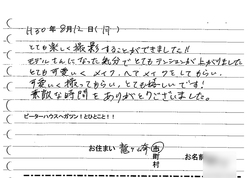 H30年8月12日(日)
とても楽しく撮影することができました!!
モデルさんになった気分でとてもテンションが上がりました
とても可愛いく メイク、ヘアメイクをしてもらい、
可愛いく撮ってもらい、とても嬉しいです!
素敵な時間をありがとうございました。
ピーターハウスへガツン!とひとこと!!
お住まい 龍ヶ崎 市 町 村
お名前